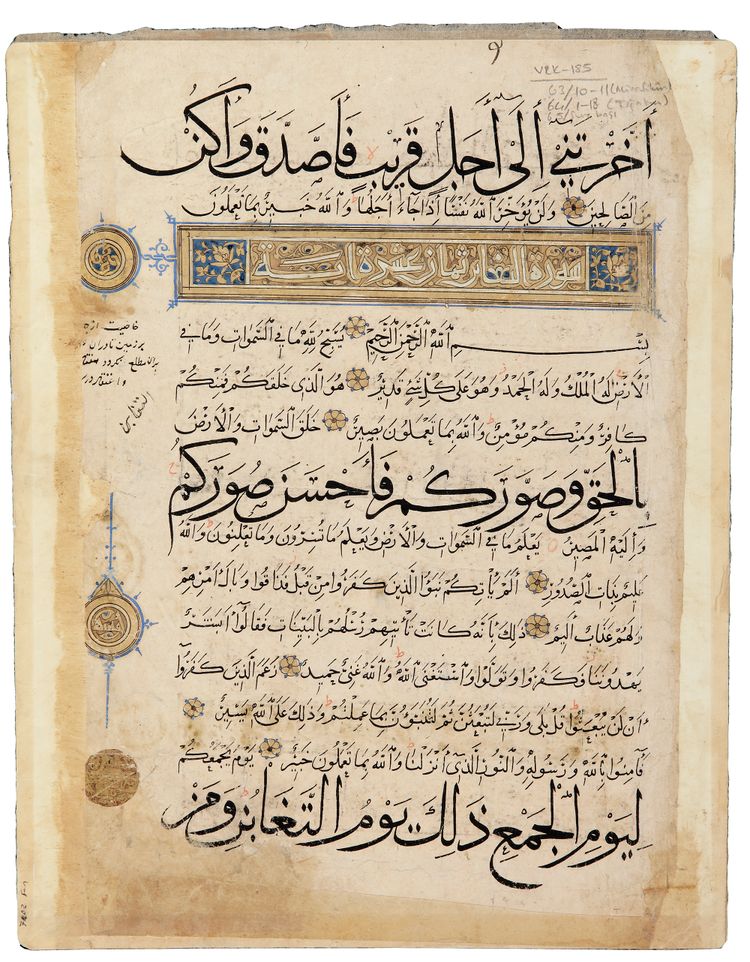 VEK-185
63/10-11 (Münafikûn)
64/1-18 (Teğabun)
أَخَّرْتَنِي إِلَى أَجَلٍ قَرِيبٍ فَأَصَّدَّقَ وَأَكُنْ
مِنَ الصَّالِحِينَ وَلَنْ يُؤَخِّرَ اللَّهُ نَفْسًا إِذَا جَاءَ أَجَلُهَا وَاللَّهُ خَبِيرٌ بِمَا تَعْمَلُونَ
سورة التغابن ثمان عشرة
بِسْمِ اللَّهِ الرَّحْمَنِ الرَّحِيمِ يُسَبِّحُ لِلَّهِ مَا فِي السَّمَوَاتِ وَمَا فِي
الْأَرْضِ لَهُ الْمُلْكُ وَلَهُ الْحَمْدُ وَهُوَ عَلَى كُلِّ شَيْءٍ قَدِيرٌ هُوَ الَّذِي خَلَقَكُمْ فَمِنْكُمْ
كَافِرٌ وَمِنْكُمْ مُؤْمِنٌ وَاللَّهُ بِمَا تَعْمَلُونَ بَصِيرٌ خَلَقَ السَّمَوَاتِ وَالْأَرْضَ
بِالْحَقِّ وَصَوَّرَكُمْ فَأَحْسَنَ صُوَرَكُمْ
وَإِلَيْهِ الْمَصِيرُ يَعْلَمُ مَا فِي السَّمَوَاتِ وَالْأَرْضِ وَيَعْلَمُ مَا تُسِرُّونَ وَمَا تُعْلِنُونَ وَاللَّهُ
عَلِيمٌ بِذَاتِ الصُّدُورِ أَلَمْ يَأْتِكُمْ نَبَؤُا الَّذِينَ كَفَرُوا مِنْ قَبْلُ فَذَاقُوا وَبَالَ أَمْرِهِمْ
وَلَهُمْ عَذَابٌ أَلِيمٌ ذَلِكَ بِأَنَّهُ كَانَتْ تَأْتِيهِمْ رُسُلُهُمْ بِالْبَيِّنَاتِ فَقَالُوا أَبَشَرٌ
يَهْدُونَنَا فَكَفَرُوا وَتَوَلَّوْا وَاسْتَغْنَى اللَّهُ وَاللَّهُ غَنِيٌّ حَمِيدٌ زَعَمَ الَّذِينَ كَفَرُوا
أَنْ لَنْ يُبْعَثُوا قُلْ بَلَى وَرَبِّي لَتُبْعَثُنَّ ثُمَّ لَتُنَبَّؤُنَّ بِمَا عَمِلْتُمْ وَذَلِكَ عَلَى اللَّهِ يَسِيرٌ
فَآمِنُوا بِاللَّهِ وَرَسُولِهِ وَالنُّورِ الَّذِي أَنْزَلْنَا وَاللَّهُ بِمَا تَعْمَلُونَ خَبِيرٌ يَوْمَ يَجْمَعُكُمْ
لِيَوْمِ الْجَمْعِ ذَلِكَ يَوْمُ التَّغَابُنِ وَمَنْ